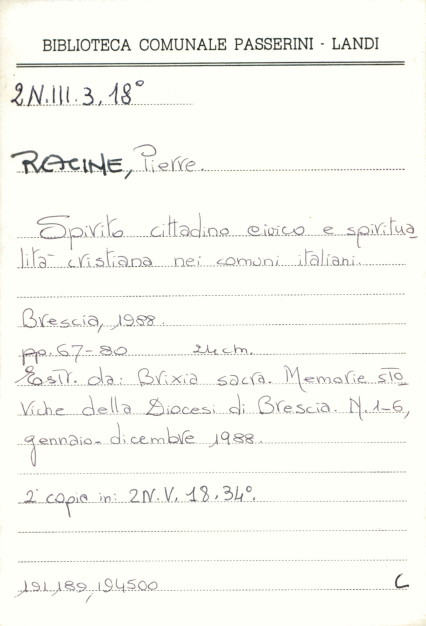 BIBLIOTECA COMUNALE PASSERINI - LANDI
2N.III.3,18°
RACINE, Pierre.
Spirito cittadino civico e spiritua
lità cristiana nei comuni italiani.
Brescia, 1988.
pp. 67-80 24 cm.
Estr. da: Brixia sacra. Memorie sto
riche della Diocesi di Brescia. N. 1-6,
gennaio-dicembre 1988.
2° copia in: 2N.V.18.34°.
191189,194500
C